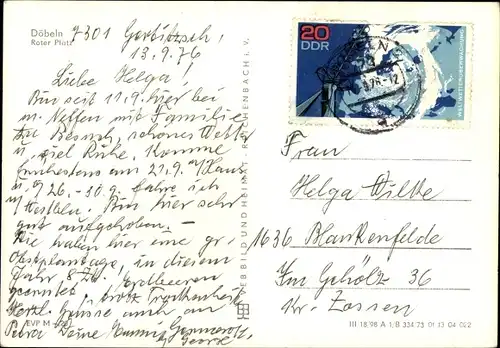 Döbeln
Roter Platz
7301 Gerbitzsch, /
13.9.76
Liebe Helga!
Bin seit 11.9. hier bei
m. Neffen mit Familie
zu Besuch, schönes Wetter
u. viel Ruhe. Komme
frühestens am 21.9. n/Haus
u. 26.-30.9. fahre ich
n/Westbln. Bin hier sehr
gut aufgehoben. —
Sie haben hier eine gr.
Obstplantage, in diesem
Jahr 8 Ztr. Erdbeeren
geerntet, trotz Trockenheit.
Herzl. Grüsse auch an
Petra Deine
EVP M
BILD UND HEIMAT, REICHENBACH i. V.
20
DDR
Frau
Helga Wilke
1636 Blankenfelde
Im Gehölz 36
Kr. Zossen
III 18/98 A 1/B 334/73 01 13 04 022